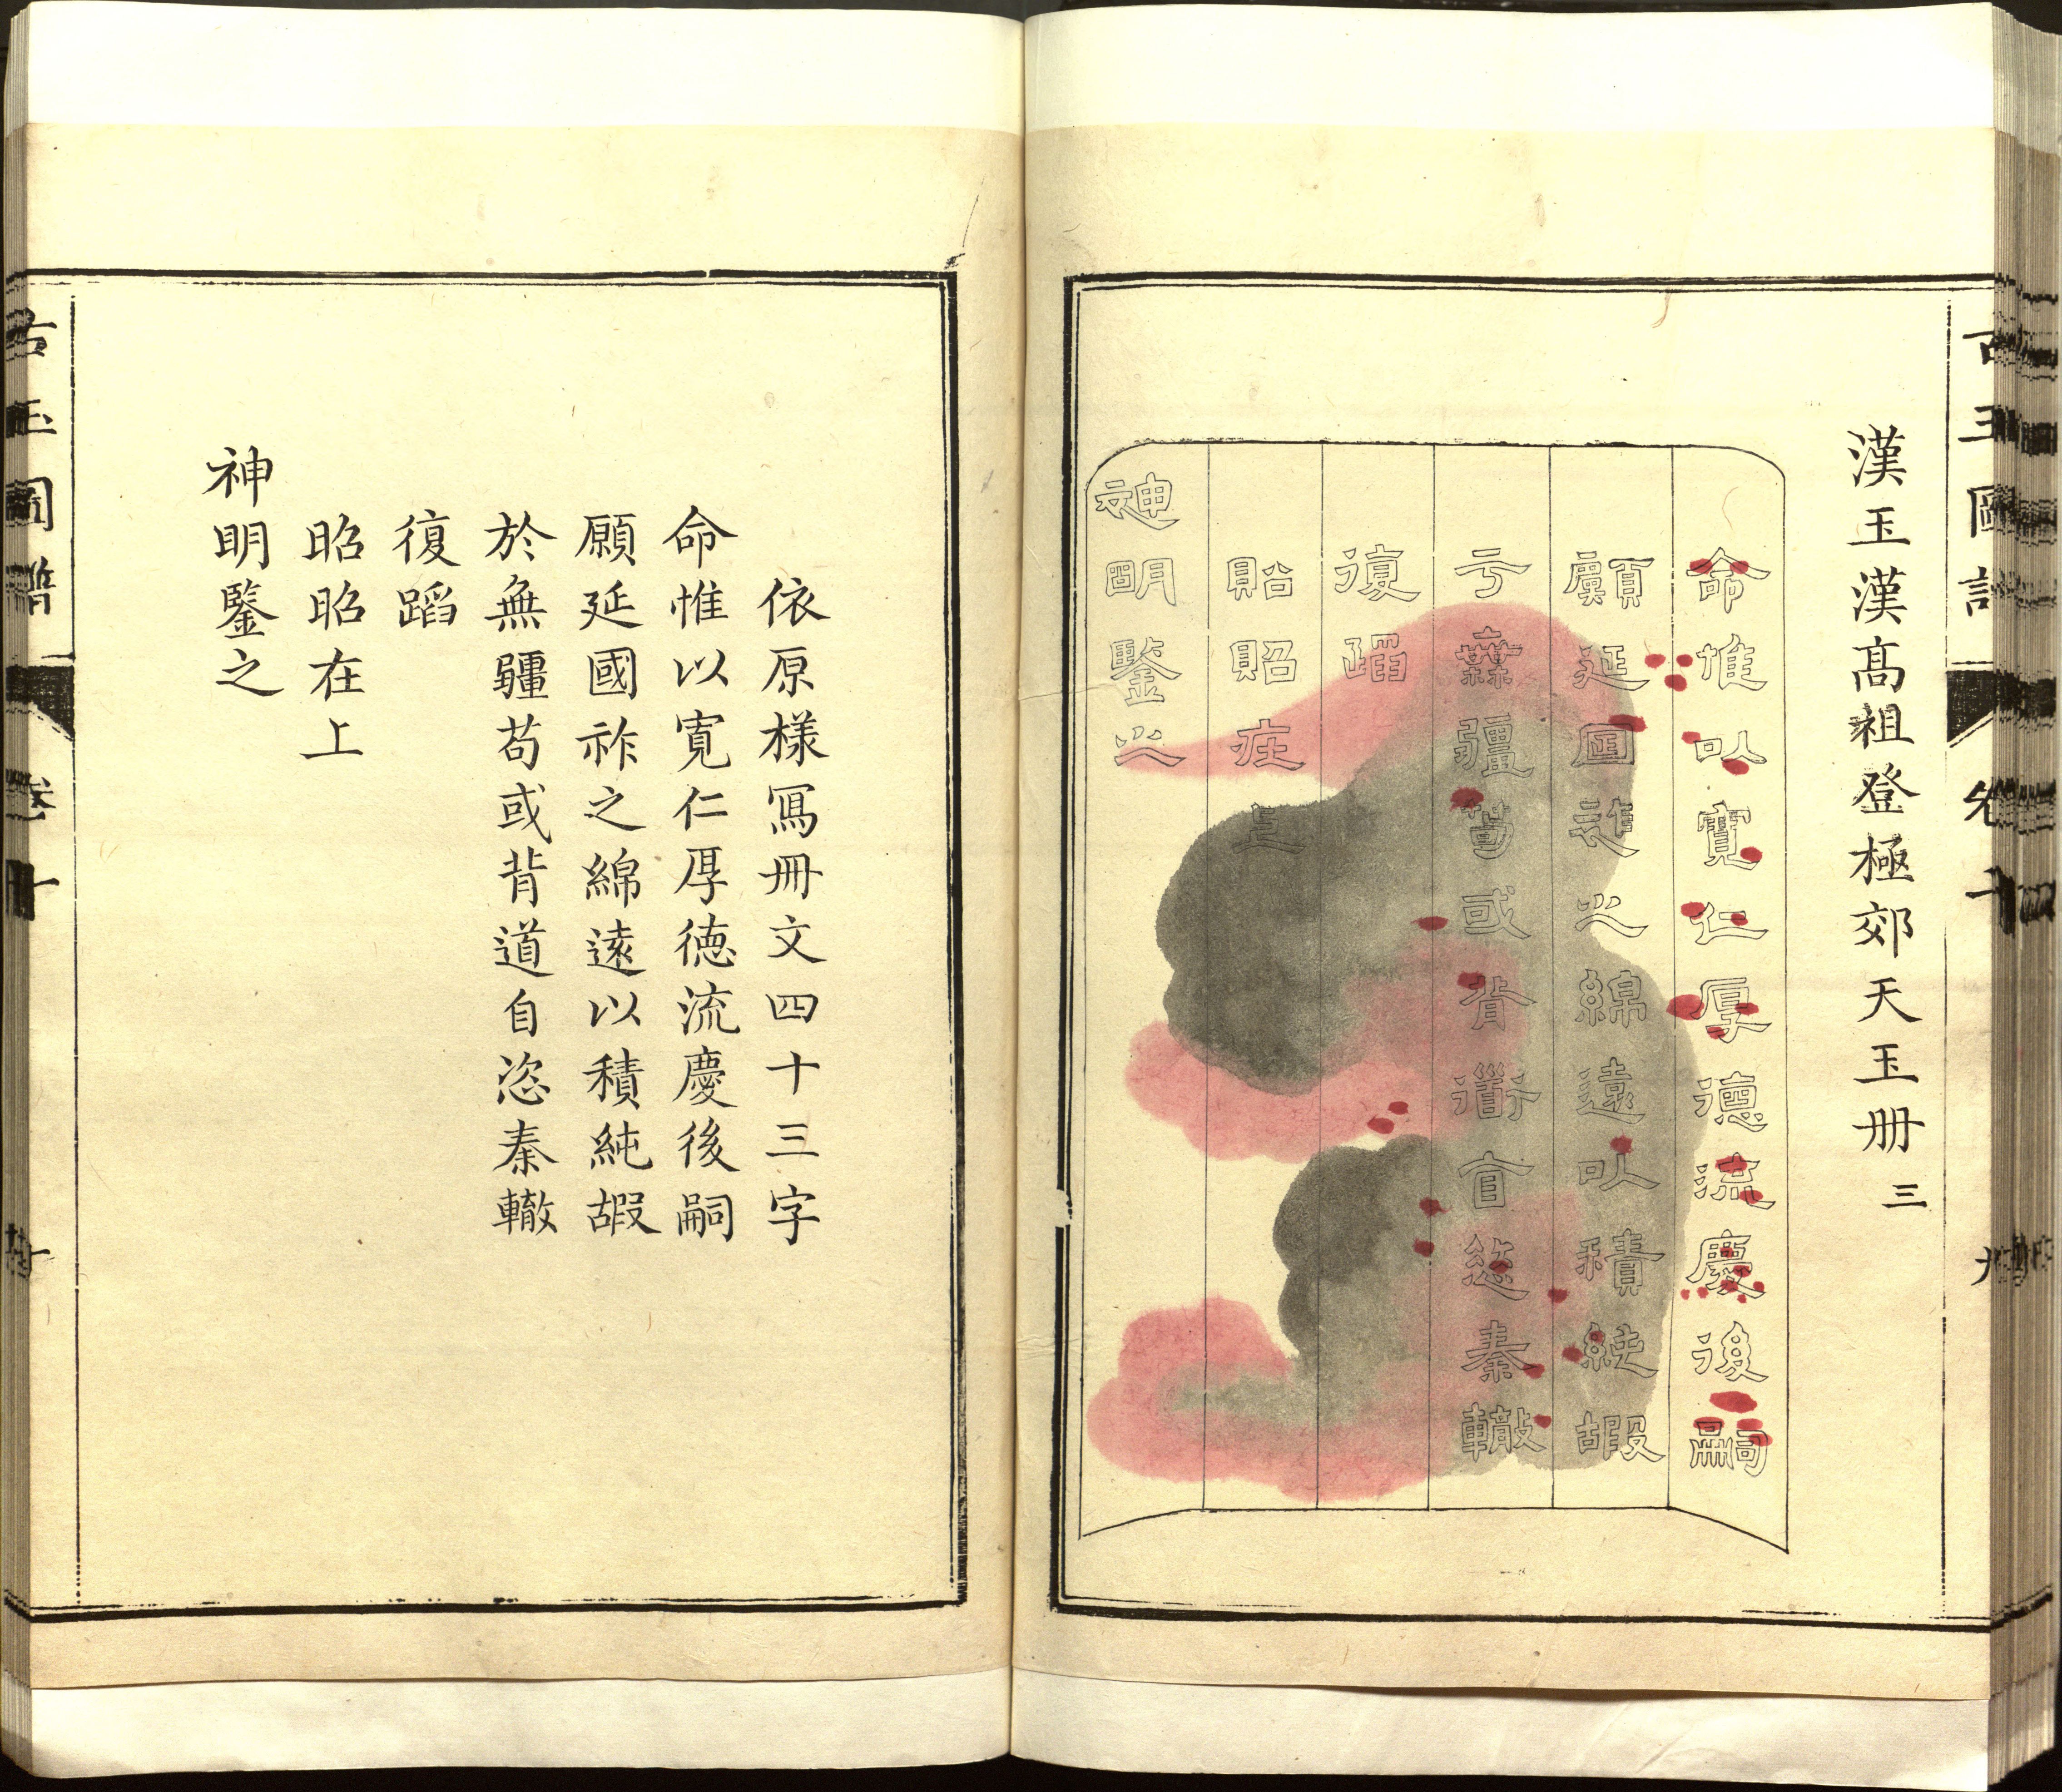 漢玉漢高祖登極郊天玉册 三
命惟以寬仁厚德流慶後嗣
顧延國祚之綿遠以積純嘏
亏無疆苟或背衟自恣秦轍
復蹈
昭昭在上
神明鑒之
依原樣冩冊文四十三字
命惟以寛仁厚徳流慶後嗣
願延國祚之綿遠以積純嘏
於無疆苟或背道自恣秦轍
復蹈
昭昭在上
神明鑒之
古玉圖譜 卷十